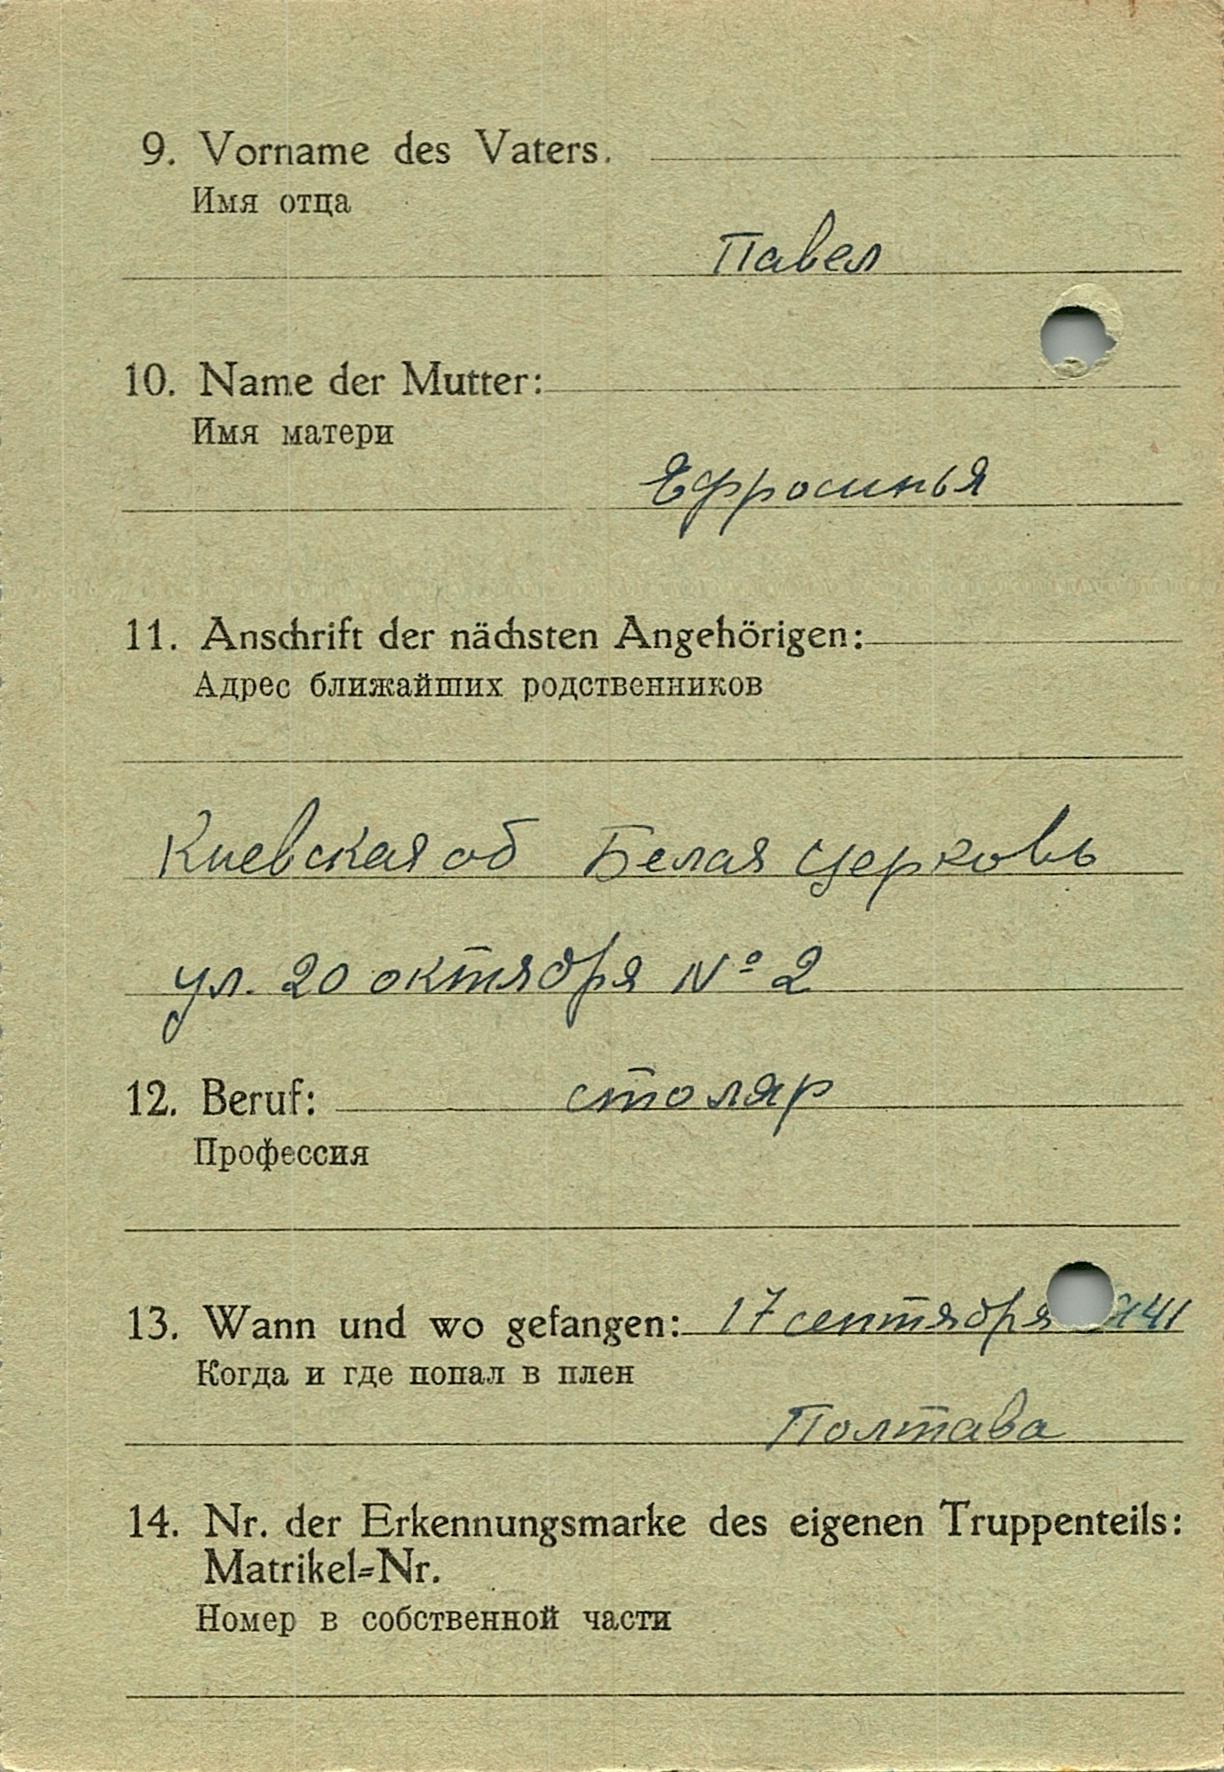 9. Vorname des Vaters.
Имя отца
Павел
10. Name der Mutter:
Имя матери
Ефросинья
11. Anschrift der nächsten Angehörigen:
Адрес ближайших родственников
Киевская об Белая церковь
ул. 20 октября № 2
12. Beruf: столяр
Профессия
13. Wann und wo gefangen: 17 сентября 41
Когда и где попал в плен
Полтава
14. Nr. der Erkennungsmarke des eigenen Truppenteils:
Matrikel=Nr.
Номер в собственной части